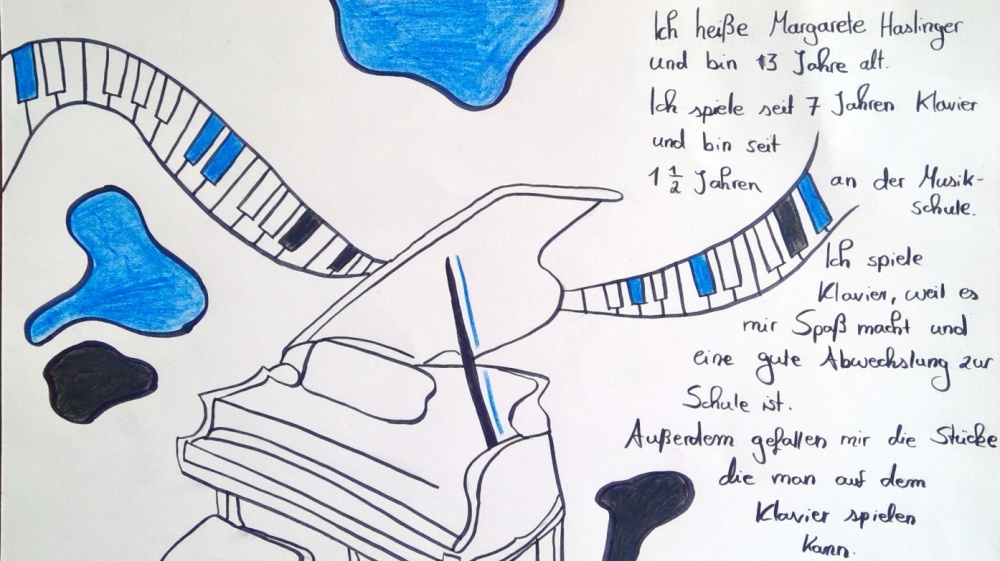 Ich heiße Margarete Haslinger
und bin 13 Jahre alt.
Ich spiele seit 7 Jahren Klavier
und bin seit
1 1/2 Jahren an der Musik-
schule.
Ich spiele
Klavier, weil es
mir Spaß macht und
eine gute Abwechslung zur
Schule ist.
Außerdem gefallen mir die Stücke
die man auf dem
Klavier spielen
kann.